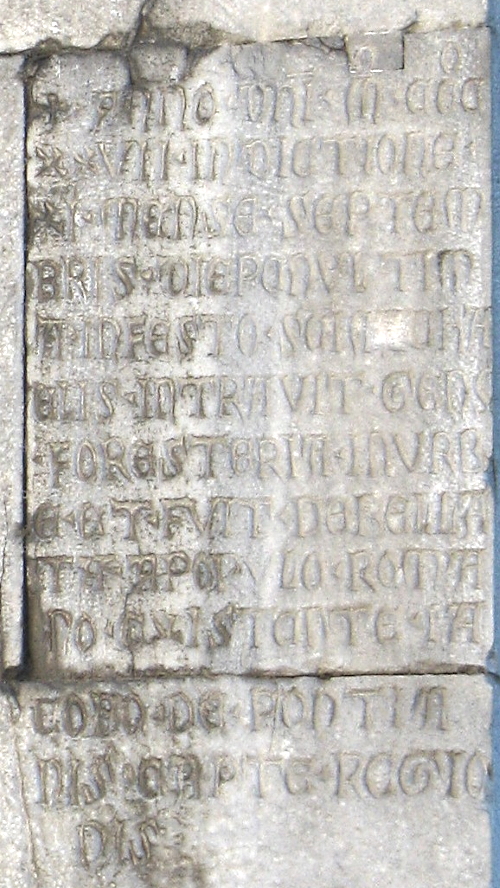 + ANNO · DNI · M · CCC
XXVII · INDICTIONE ·
XI · MENSE · SEPTEM
BRIS · DIE PENVLTIM
A · IN FESTO · SCI
ELIS · INTRAVIT · GENS
FORESTERIA · IN VRB
E · ET · FVIT · DEBELLA
TA · A POPVLO · ROMA
NO · EXISTENTE · IA
COBO · DE · PONTIA
NIS · CAPTE · REGIO
NIS